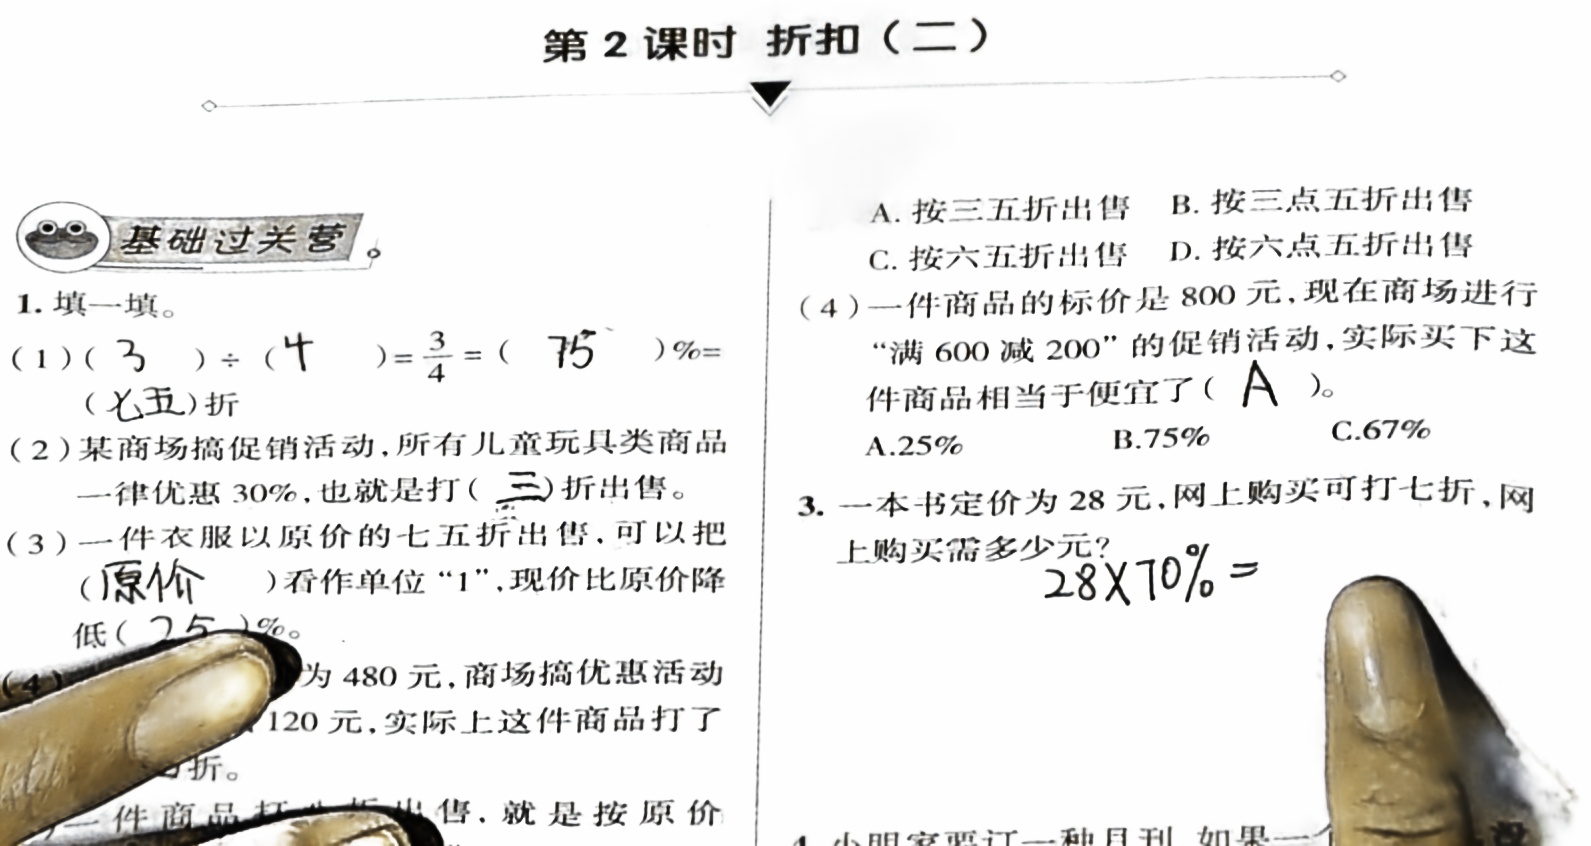 第2课时 折扣(二)
基础过关营
1. 填一填。
(1)( 3 )÷( 4 )=3/4=( 75 )%=
(七五)折
(2)某商场搞促销活动,所有儿童玩具类商品
一律优惠 30%,也就是打( 三 )折出售。
(3)一件衣服以原价的七五折出售,可以把
(原价 )看作单位“1”,现价比原价降
低( 25 )%。
(4)
为 480 元,商场搞优惠活动
120 元,实际上这件商品打了
折。
一件商品打 折出售,就是按原价
A. 按三五折出售 B. 按三点五折出售
C. 按六五折出售 D. 按六点五折出售
(4)一件商品的标价是 800 元,现在商场进行
“满 600 减 200”的促销活动,实际买下这
件商品相当于便宜了( A )。
A.25% B.75% C.67%
3. 一本书定价为 28 元,网上购买可打七折,网
上购买需多少元?
28×70%=
4. 小明家要订一种月刊,如果一